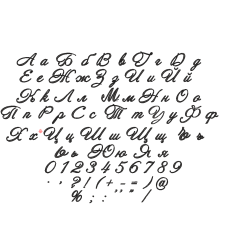 А а Б б В в Г г Д д
Е е Ж ж З з И и Й й
К к Л л М м Н н О о
П п Р р С с Т т У у Ф ф
Х х Ц ц Ш ш Щ щ Ъ ъ
Ь ь Э Ю ю Я я
0 1 2 3 4 5 6 7 8 9
. , ? ! ( + - = ) @
% ; : " /